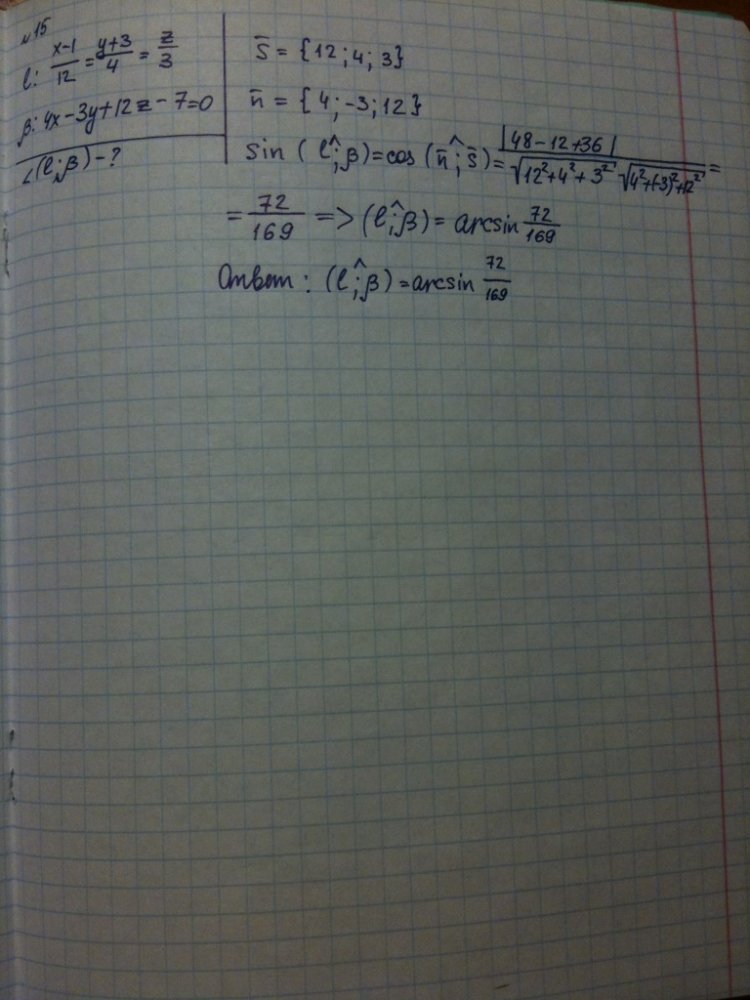 №15
l: (x-1)/12 = (y+3)/4 = z/3
β: 4x-3y+12z-7=0
∠(l;β)-?
s̄ = {12;4;3}
n̄ = {4;-3;12}
sin(l;^β)=cos(n̄;^s̄)= |48-12+36| / √(12²+4²+3²) √(4²+(-3)²+12²) =
= 72/169 => (l;^β) = arcsin 72/169
Ответ: (l;^β) = arcsin 72/169